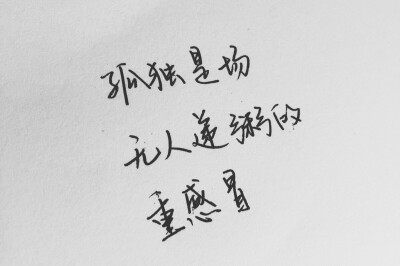 孤独是场
无人递粥的
重感冒